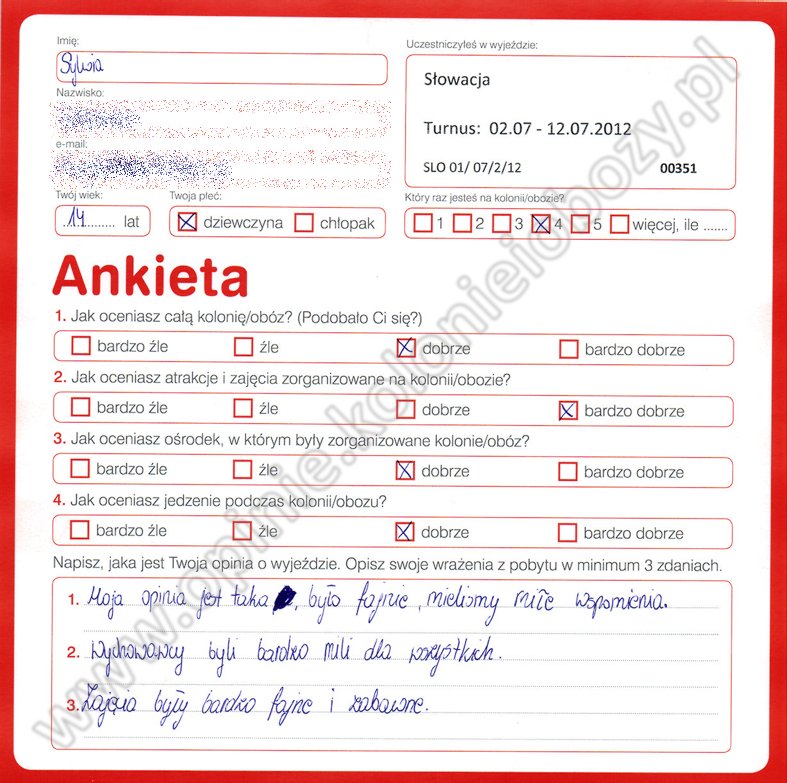 Imię:
Sylwia
Uczestniczyłeś w wyjeździe:
Słowacja
Turnus: 02.07 - 12.07.2012
SLO 01/ 07/2/12 00351
Nazwisko:
e-mail:
Twój wiek:
14 lat
Twoja płeć:
dziewczyna chłopak
Który raz jesteś na kolonii/obozie?
1 2 3 4 5 więcej, ile .......
Ankieta
1. Jak oceniasz całą kolonię/obóz? (Podobało Ci się?)
bardzo źle źle dobrze bardzo dobrze
2. Jak oceniasz atrakcje i zajęcia zorganizowane na kolonii/obozie?
bardzo źle źle dobrze bardzo dobrze
3. Jak oceniasz ośrodek, w którym były zorganizowane kolonie/obóz?
bardzo źle źle dobrze bardzo dobrze
4. Jak oceniasz jedzenie podczas kolonii/obozu?
bardzo źle źle dobrze bardzo dobrze
Napisz, jaka jest Twoja opinia o wyjeździe. Opisz swoje wrażenia z pobytu w minimum 3 zdaniach.
1. Moja opinia jest taka, było fajnie, mieliśmy miłe wspomienia.
2. Wychowawcy byli bardzo mili dla wszystkich.
3. Zajęcia były bardzo fajne i zabawne.
www.opinie.kolonieiobozy.pl